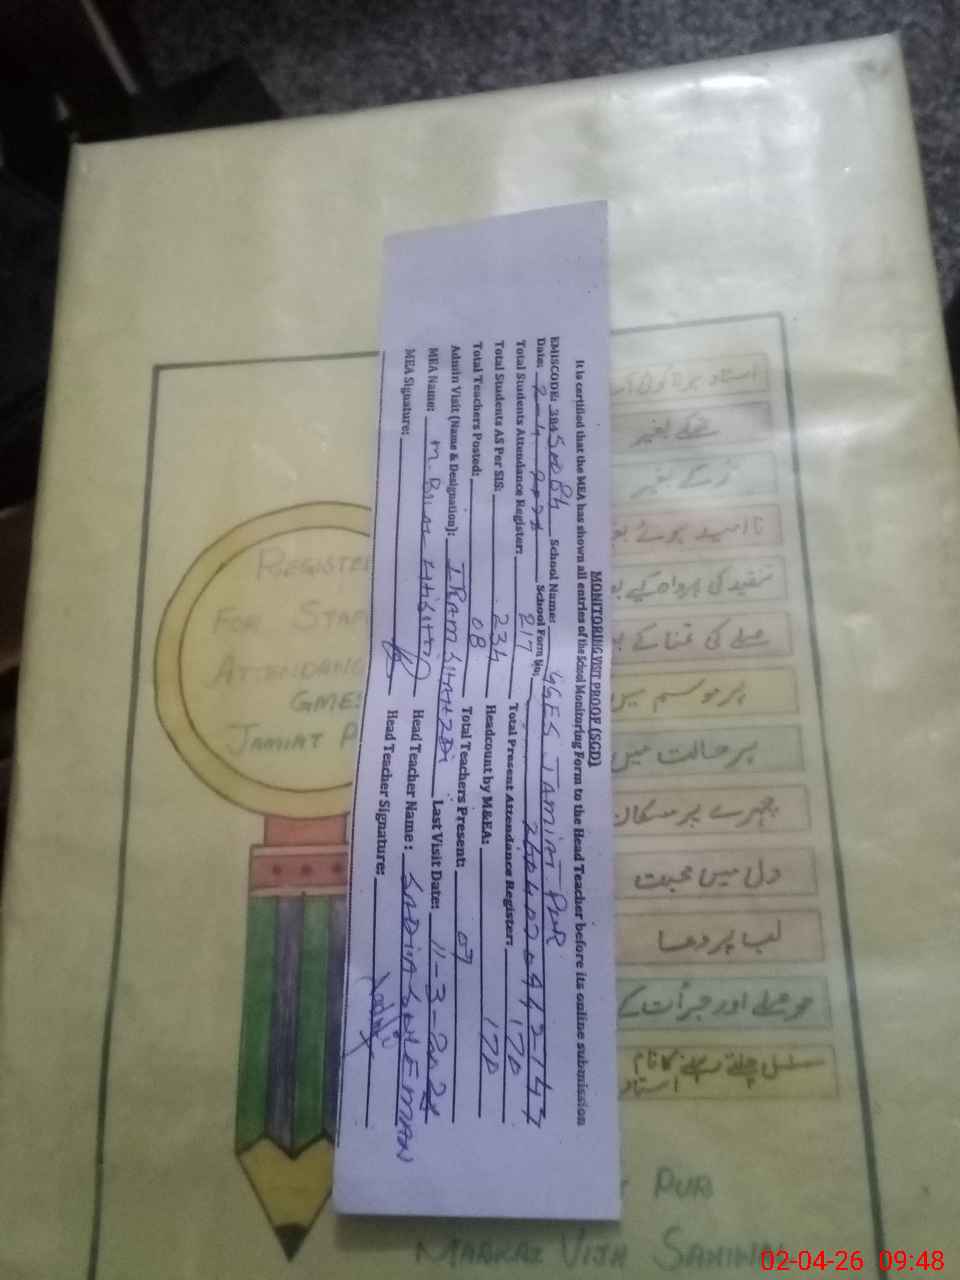 MONITORING VISIT PROOF (SGD)
It is certified that the MEA has shown all entries of the School Monitoring Form to the Head Teacher before its online submission
EMISCODE: School Name: GGES JAMIAT PUR
Date: 2-4 School Form No:
Total Students Attendance Register: 217 Total Present Attendance Register: 170
Total Students AS Per SIS: 234 Headcount by M&EA: 170
Total Teachers Posted: 08 Total Teachers Present: 07
Admin Visit (Name & Designation): IKRAM SHAHZAD Last Visit Date: 11-3-
MEA Name: Head Teacher Name: SADIA
MEA Signature: Head Teacher Signature:
REGISTER
FOR STAFF
ATTENDANCE
GMES
JAMIAT P
کے بغیر
نا امید ہوئے
تنقید کی پرواہ کیے
صلے کی تمنا کے
ہر موسم میں
ہر حالت میں
چہرے پر مسکان
دل میں محبت
لب پر دعا
حوصلے اور جرأت کے
PUR
MARKAZ VIJH SAHIWAL
02-04-26 09:48